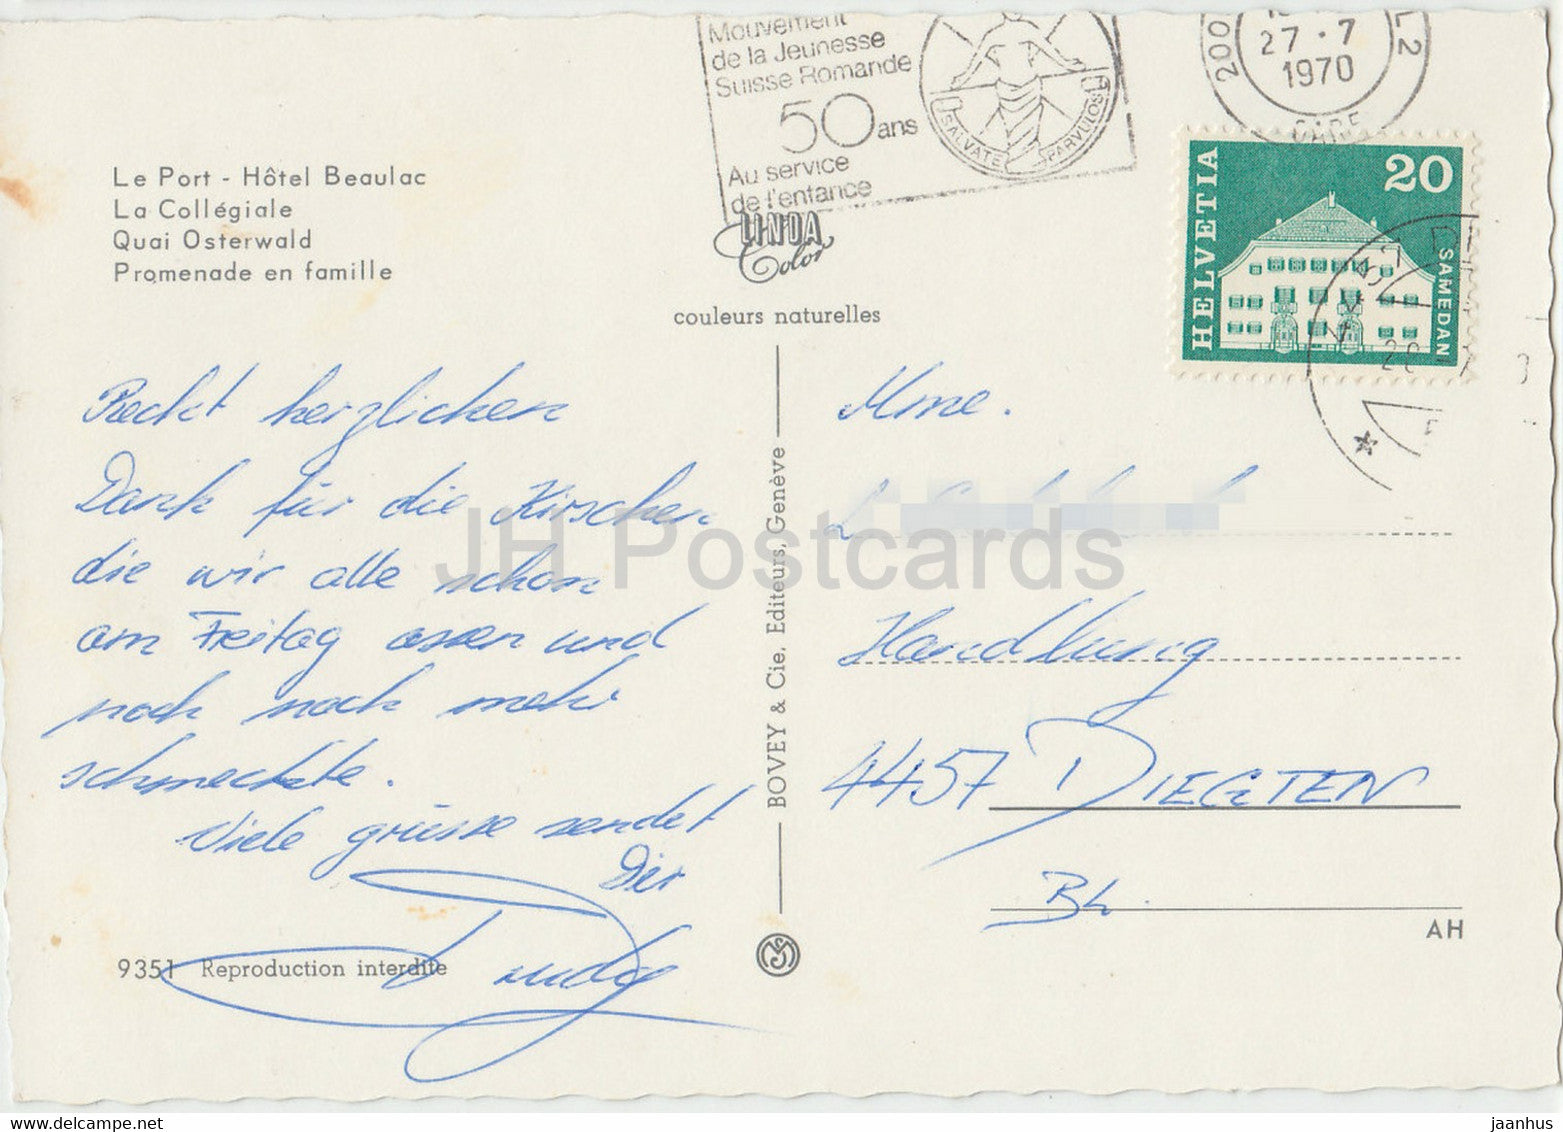 Mouvement
de la Jeunesse
Suisse Romande
50 ans
Au service
de l'enfance
SALVATE PARVULOS
200
27 · 7
1970
GARE
2
HELVETIA
20
SAMEDAN
Le Port - Hôtel Beaulac
La Collégiale
Quai Osterwald
Promenade en famille
LINDA
Color
couleurs naturelles
Recht herzlichen
Dank für die Kirschen
die wir alle schon
am Freitag assen und
noch noch mehr
schmeckte.
Viele grüsse sendet
Dir
9351 Reproduction interdite
BOVEY & Cie, Editeurs, Genève
Mme.
Handlung
4457 DIEGTEN
BL.
AH
JH Postcards
jaanhus